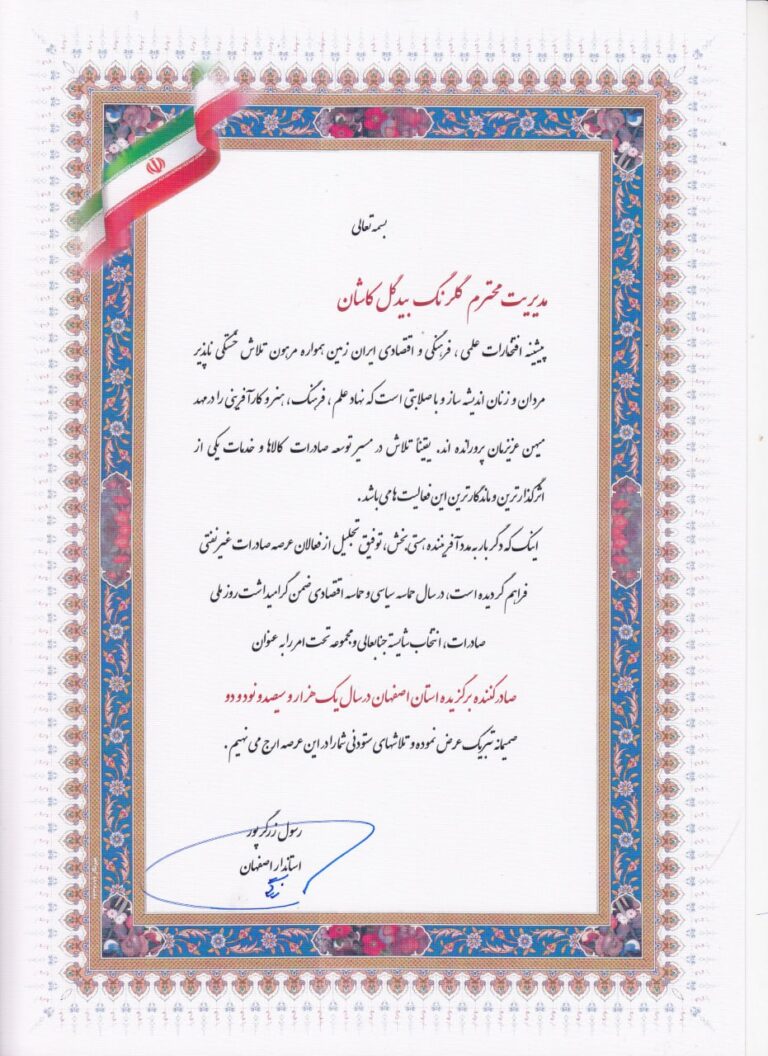 بسمه تعالی
مدیریت محترم گلرنگ بیدگل کاشان
پیشینه افتخارات علمی ، فرهنگی و اقتصادی ایران زمین همواره مرهون تلاش خستگی ناپذیر
مردان و زنان اندیشه ساز و با صلابتی است که نهاد علم ، فرهنگ ، هنر و کارآفرینی را در مهد
میهن عزیزمان پرورانده اند. یقیناً تلاش در مسیر توسعه صادرات کالاها و خدمات یکی از
اثرگذارترین و ماندگارترین این فعالیت ها می باشد .
اینک که دگر بار به مدد آفریننده هستی بخش، توفیق تجلیل از فعالان عرصه صادرات غیرنفتی
فراهم گردیده است، در سال حماسه سیاسی و حماسه اقتصادی ضمن گرامیداشت روز ملی
صادرات، انتخاب شایسته جنابعالی و مجموعه تحت امر را به عنوان
صادرکننده برگزیده استان اصفهان در سال یک هزار و سیصد و نود و دو
صمیمانه تبریک عرض نموده و تلاشهای ستودنی شما را در این عرصه ارج می نهیم .
رسول زرگرپور
استاندار اصفهان